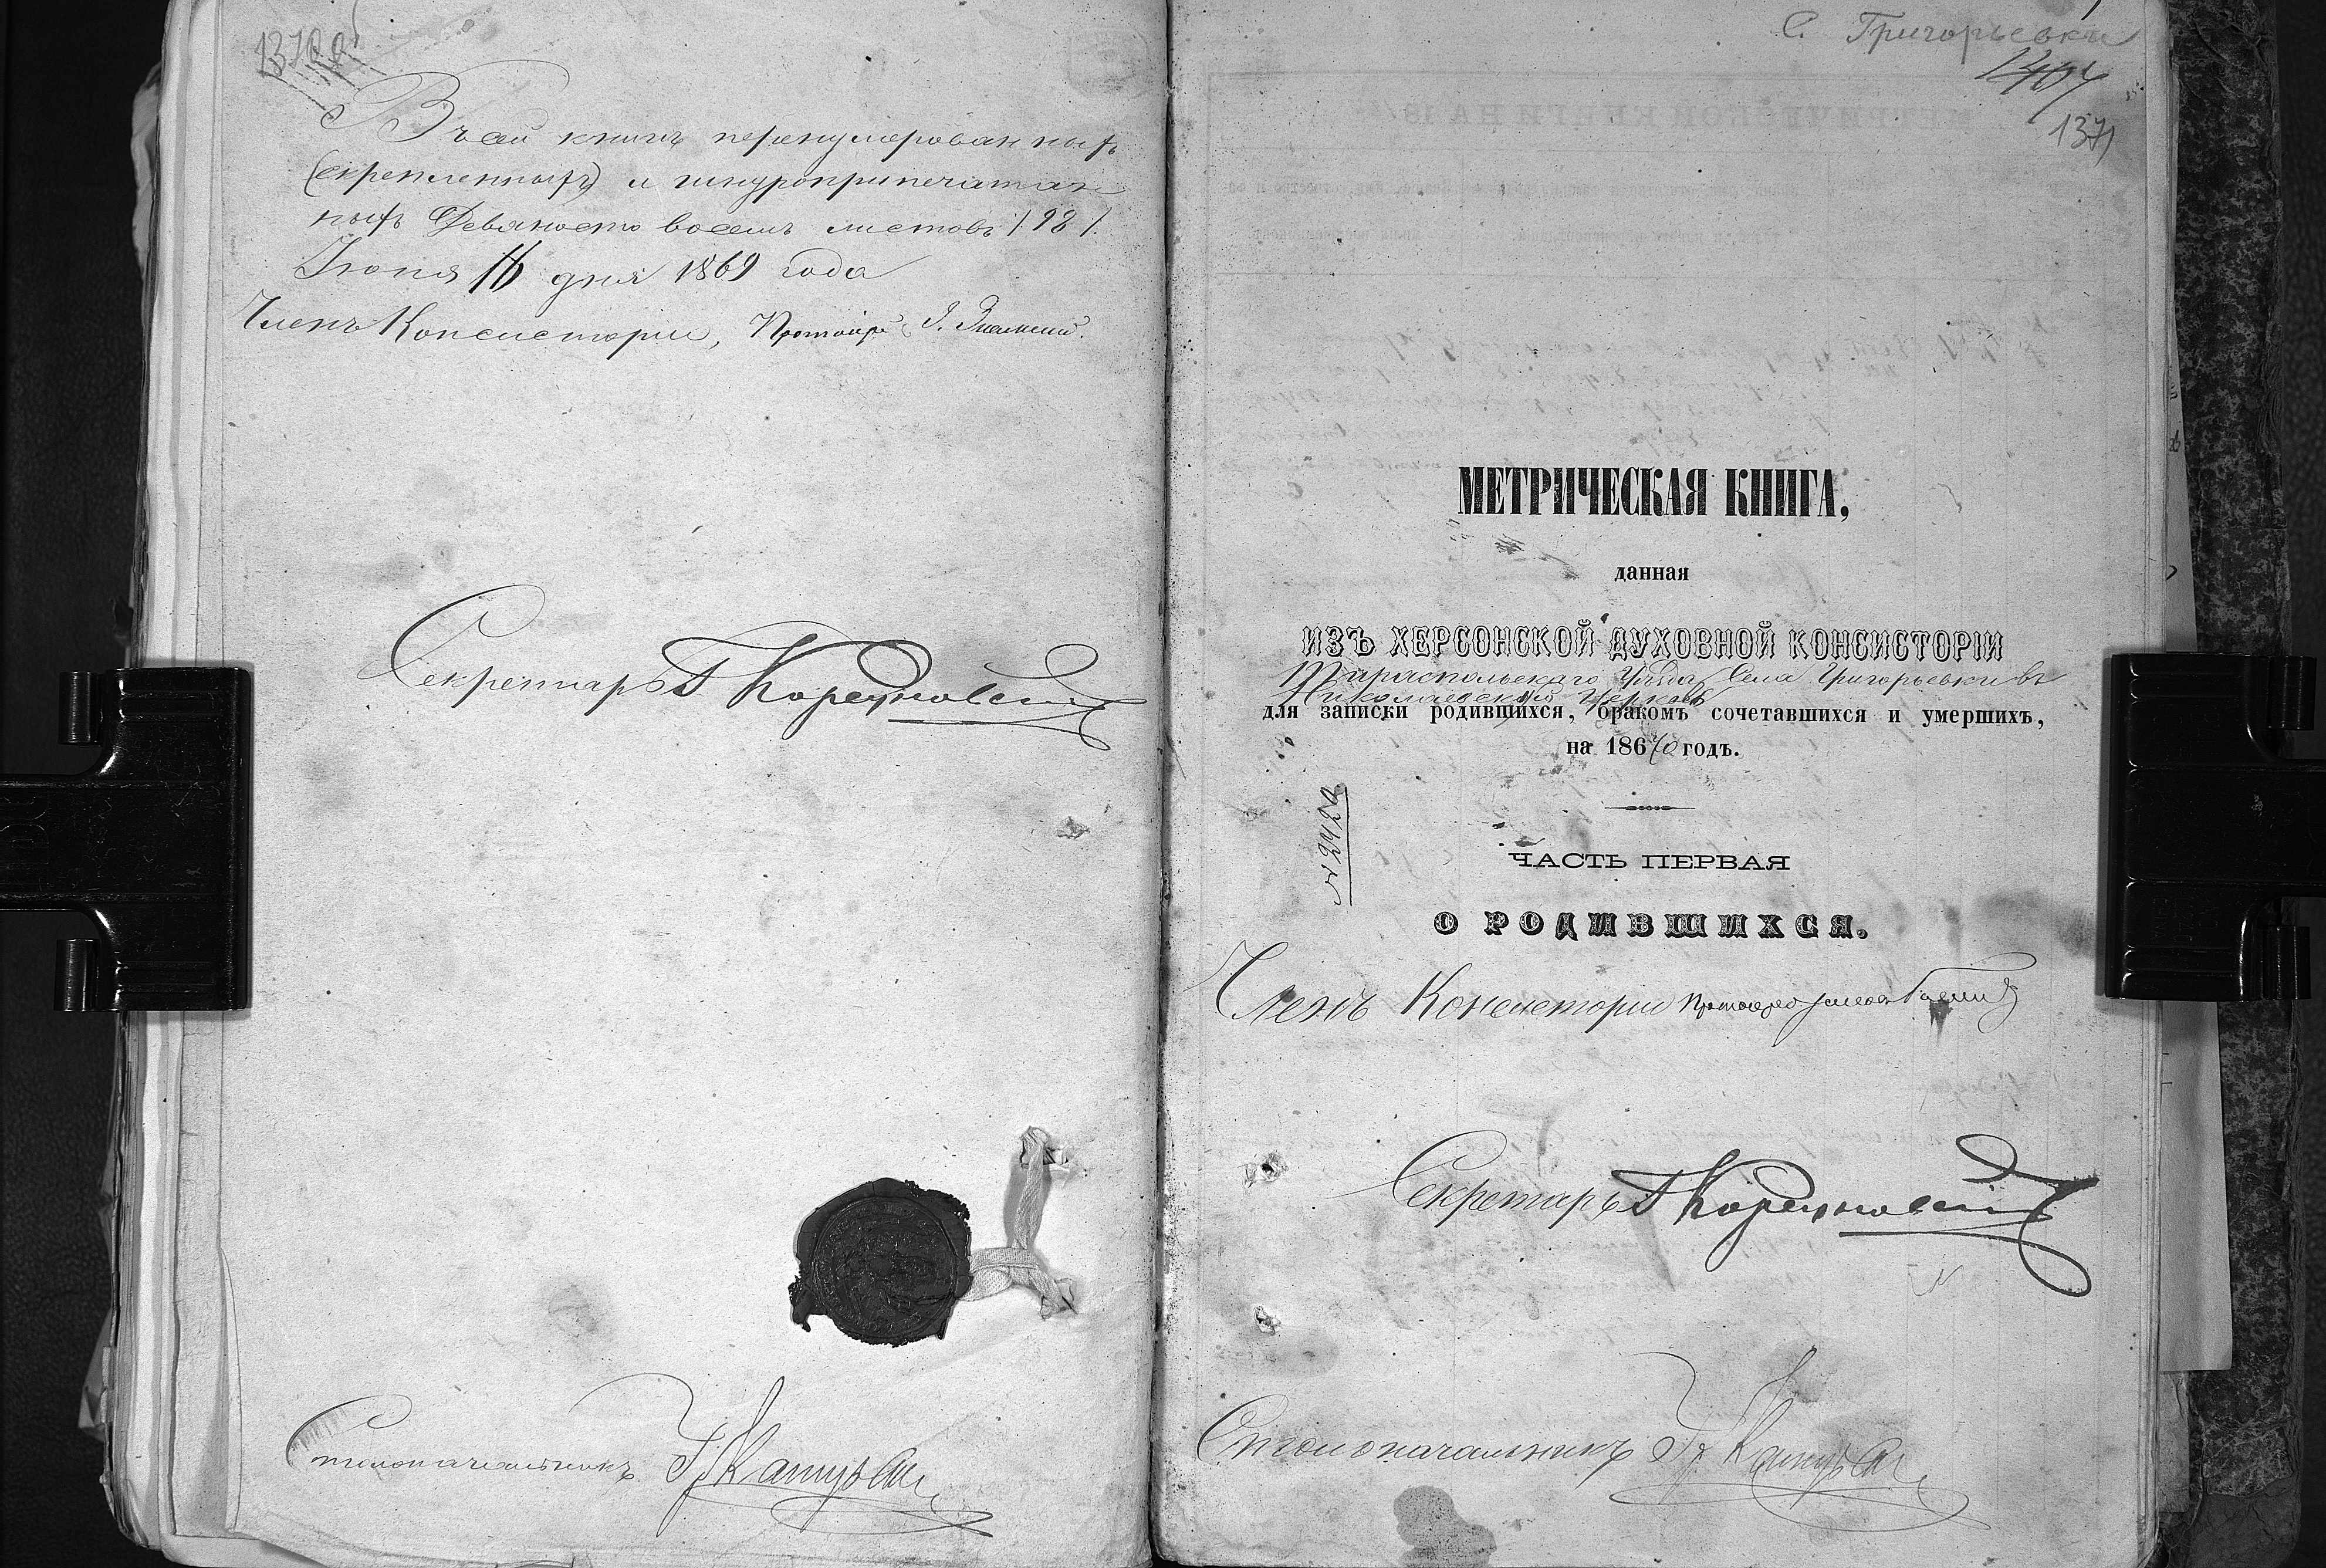 Въ сей книгѣ перенумерованныхъ
(скрепленныхъ) и шнуроприпечатан
ныхъ Девяносто восемь листовъ /98/.
Іюня 16 дня 1869 года
Членъ Консисторіи, Протоіерей
Секретарь
Столоначальникъ
С. Григорьевки
1407
1371
МЕТРИЧЕСКАЯ КНИГА,
данная
ИЗЪ ХЕРСОНСКОЙ ДУХОВНОЙ КОНСИСТОРІИ
Тираспольскаго уѣзда Села Григорьевки въ
Николаевскую церковь
для записки родившихся, бракомъ сочетавшихся и умершихъ,
на 18670 годъ.
№ 2420
ЧАСТЬ ПЕРВАЯ
О РОДИВШИХСЯ.
Членъ Консисторіи Протоіерей
Секретарь
Столоначальникъ